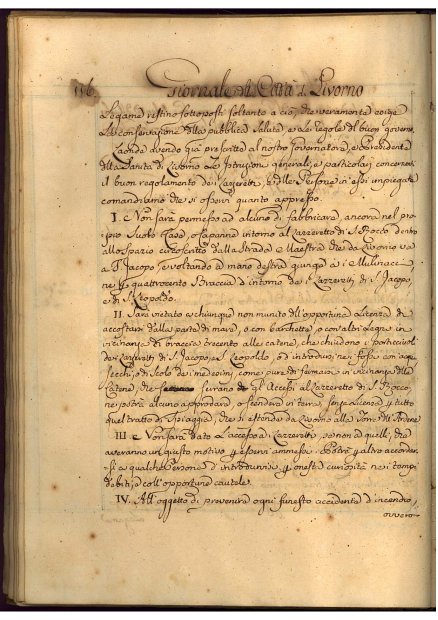 116. Giornale della Città di Livorno
Legame restino sottoposti soltanto a ciò, che veramente esige
la conservazione della pubblica Salute, e le regole di buon governo.
Laonde avendo già prescritte al nostro Governatore, e Presidente
della Sanità di Livorno le Istruzioni generali, e particolari concernenti
il buon regolamento dei Lazzeretti, e delle Persone in essi impiegate
comandiamo che si osservi quanto appresso.
I. Non sarà permesso ad alcuno di fabbricare, ancora nel pro-
prio Suolo Casa, o Capanne intorno al Lazzeretto di S. Rocco dentro
allo spazio circoscritto dalla Strada Maestra che da Livorno va
a S. Jacopo, e voltando a mano destra giunge a i Mulinacci,
ne per quattrocento Braccia d'intorno dei Lazzeretti di S. Jacopo,
e di S. Leopoldo.
II. Sarà vietato a chiunque non munito dell'opportuna Licenza di
accostarsi dalla parte di mare, o con barchetta, o con altri Legni in
vicinanza di braccia trecento alle catene, che chiudono i porticcioli
dei Lazzeretti di S. Jacopo, e S. Leopoldo, o d'introdursi nei fossi con acqua,
secchi, o di scolo dei medesimi, come pure di fermarsi in vicinanza delle
Catene, che serrano gli Accessi al Lazzeretto di S. Rocco,
ne potrà alcuno approdare, o scendere in terra senza Licenza per tutto
quel tratto di Spiaggia, che si estende da Livorno alla Torre dell'Ardenza
III. Non sarà dato l'accesso a i Lazzeretti, se non a quelli, che
averanno un giusto motivo per esservi ammessi. Potrà per altro accordar-
si a qualche Persona d'introdurvisi per onesta curiosità nei tempi
debiti, e coll'opportune cautele.
IV. All'oggetto di prevenire ogni funesto accidente d'incendio,
ovvero